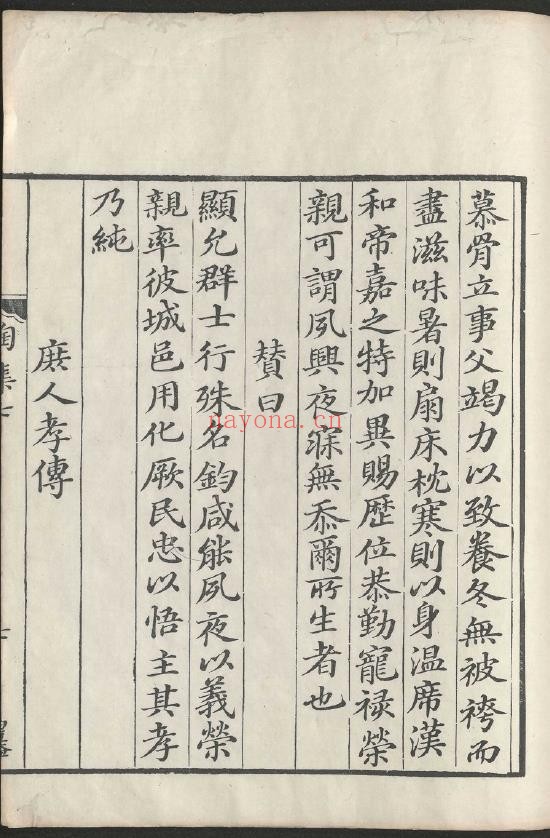 慕骨立事父竭力以致養冬無被袴而
盡滋味暑則扇床枕寒則以身温席漢
和帝嘉之特加異賜歷位恭勤寵禄榮
親可謂夙興夜寐無忝爾所生者也
賛曰
顯允群士行殊名鈞咸能夙夜以義榮
親率彼城邑用化厥民忠以悟主其孝
乃純
庶人孝傳
陶集七
nayona.cn